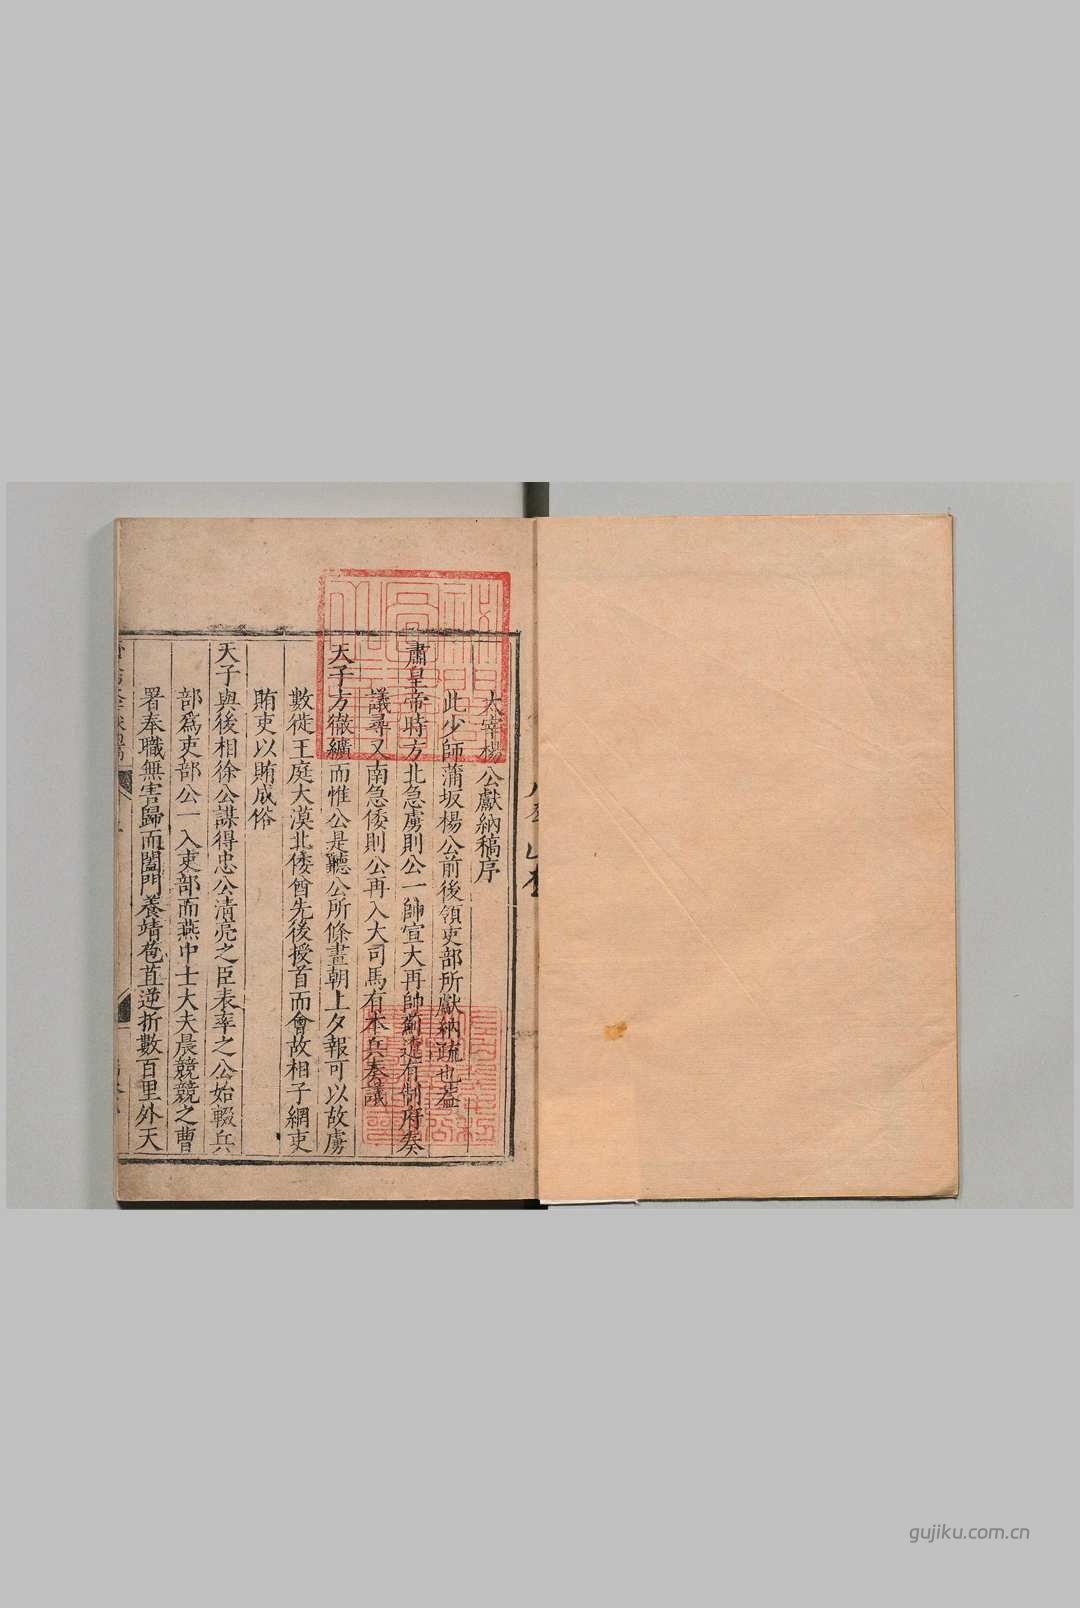 太宰楊公獻納稿序
此少師蒲坂楊公前後領吏部所獻納疏也蓋
肅皇帝時方北急虜則公一帥宣大再帥薊遼有制府奏
議尋又南急倭則公再入大司馬有本兵奏議
天子方徹纊而惟公是聽公所條晝朝上夕報可以故虜
數徙王庭大漠北倭酋先後授首而會故相子網吏
賄吏以賄成俗
天子與後相徐公謀得忠公清亮之臣表率之公始輟兵
部爲吏部公一入吏部而燕中士大夫晨競競之曹
署奉職無害歸而闔門養靖苞苴逆折數百里外天
gujiku.com.cn